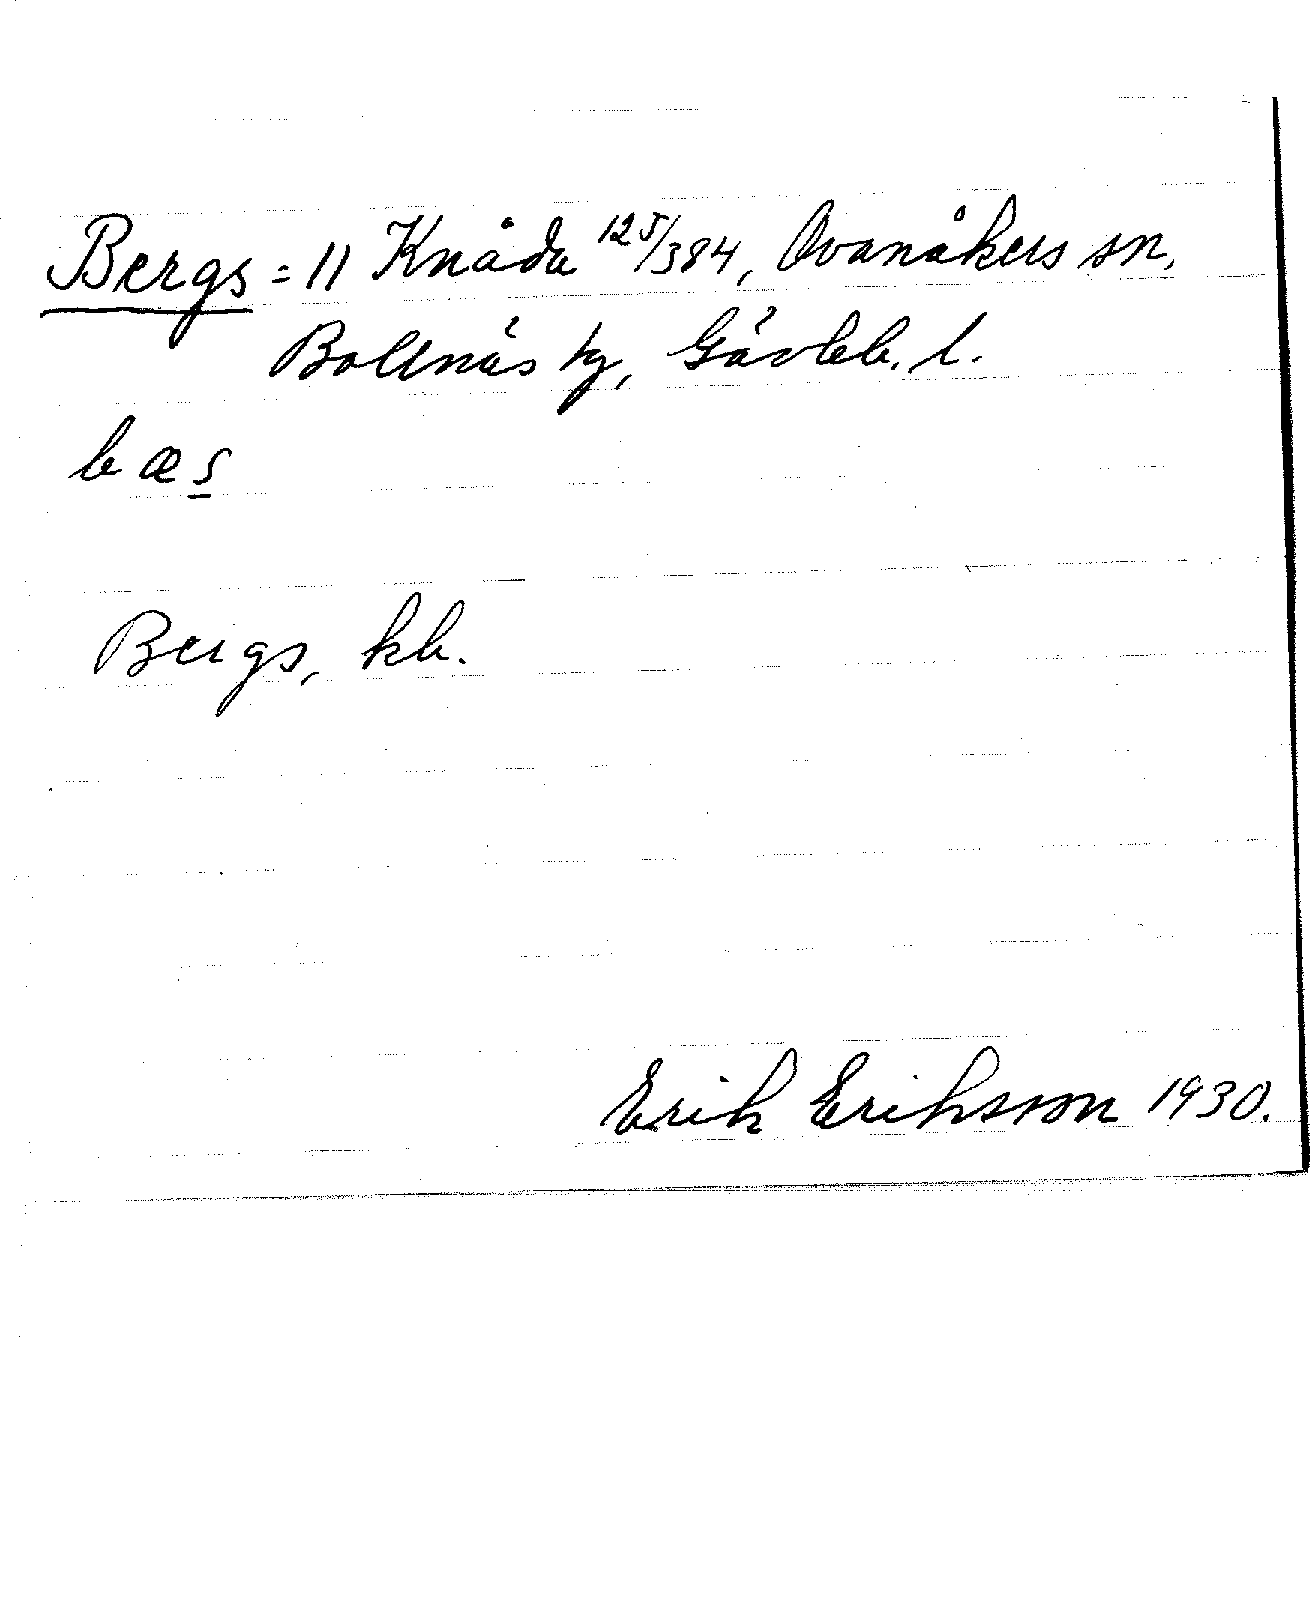 Bergs = 11 Knåda 125/384, Ovanåkers sn,
Bollnäs tg, Gävleb. l.
bæs
Bergs, kb.
Erik Eriksson 1930.